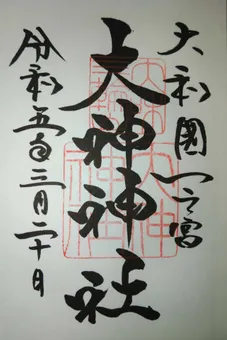 大和國一之宮
大神神社
令和五年三月二十日